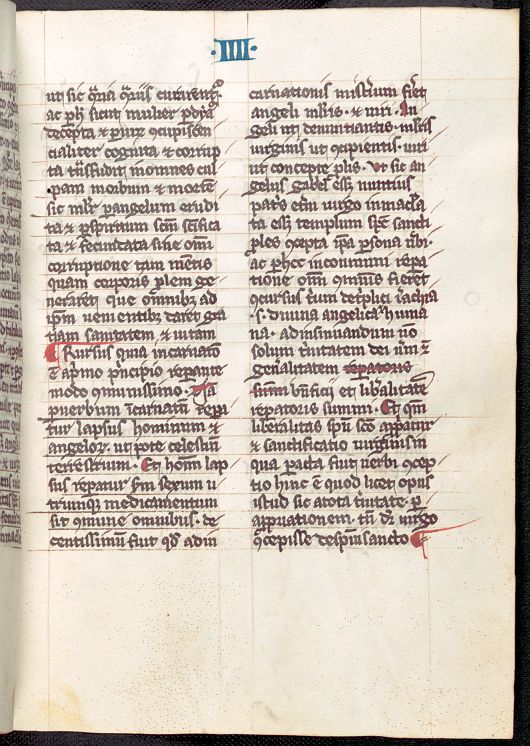 ·IIII·
ut sic contraria contrariis curarentur
ac per hoc sicut mulier per dyabolum
decepta et per uirum concupiscen
cialiter cognita et corrup
ta transfudit in omnes cul
pam morbum et mortem
sic mulier per angelum erudi
ta et per spiritum sanctum sanctifica
ta et fecundata sine omni
corruptione tam mentis
quam corporis prolem ge
neraret que omnibus ad
ipsum uenientibus daret gra
tiam sanitatem et uitam
Rursus quia incarnatio
est a primo principio reparante
modo communissimo
per uerbum incarnatum repa
tur lapsus hominum et
angelorum. ut pote celestium
terrestrium. Et hominum lap
sus reparatur secundum sexum u
trumque medicamentum
sit commune omnibus. de
centissimum fuit quod ad in
carnationis misterium fieret
angeli mulieris. et uiri. An
geli ut denuntiantis. mulieris
uirginis ut concipientis. uiri
ut concepte prolis. Ut sic an
gelus gabriel esset nuntius
patris eterni uirgo inmacula
ta esset templum spiritus sancti
proles concepta ipsa persona uerbi.
ac per hoc in communi repara
tione omnium communis fieret
concursus trium de triplici ierarchia
.s. diuina angelica huma
na. ad insinuandum non
solum trinitatem dei uerum etiam
generalitatem reparatoris
summi beneficii et liberalitatem
reparatoris summi. Et quoniam
liberalitas spiritui sancto appropriatur
et sanctificatio uirginis in
qua peracta fuit uerbi concep
tio hinc est quod licet opus
istud sit a tota trinitate. per
appropriationem tamen dicitur uirgo
concepisse de spiritu sancto